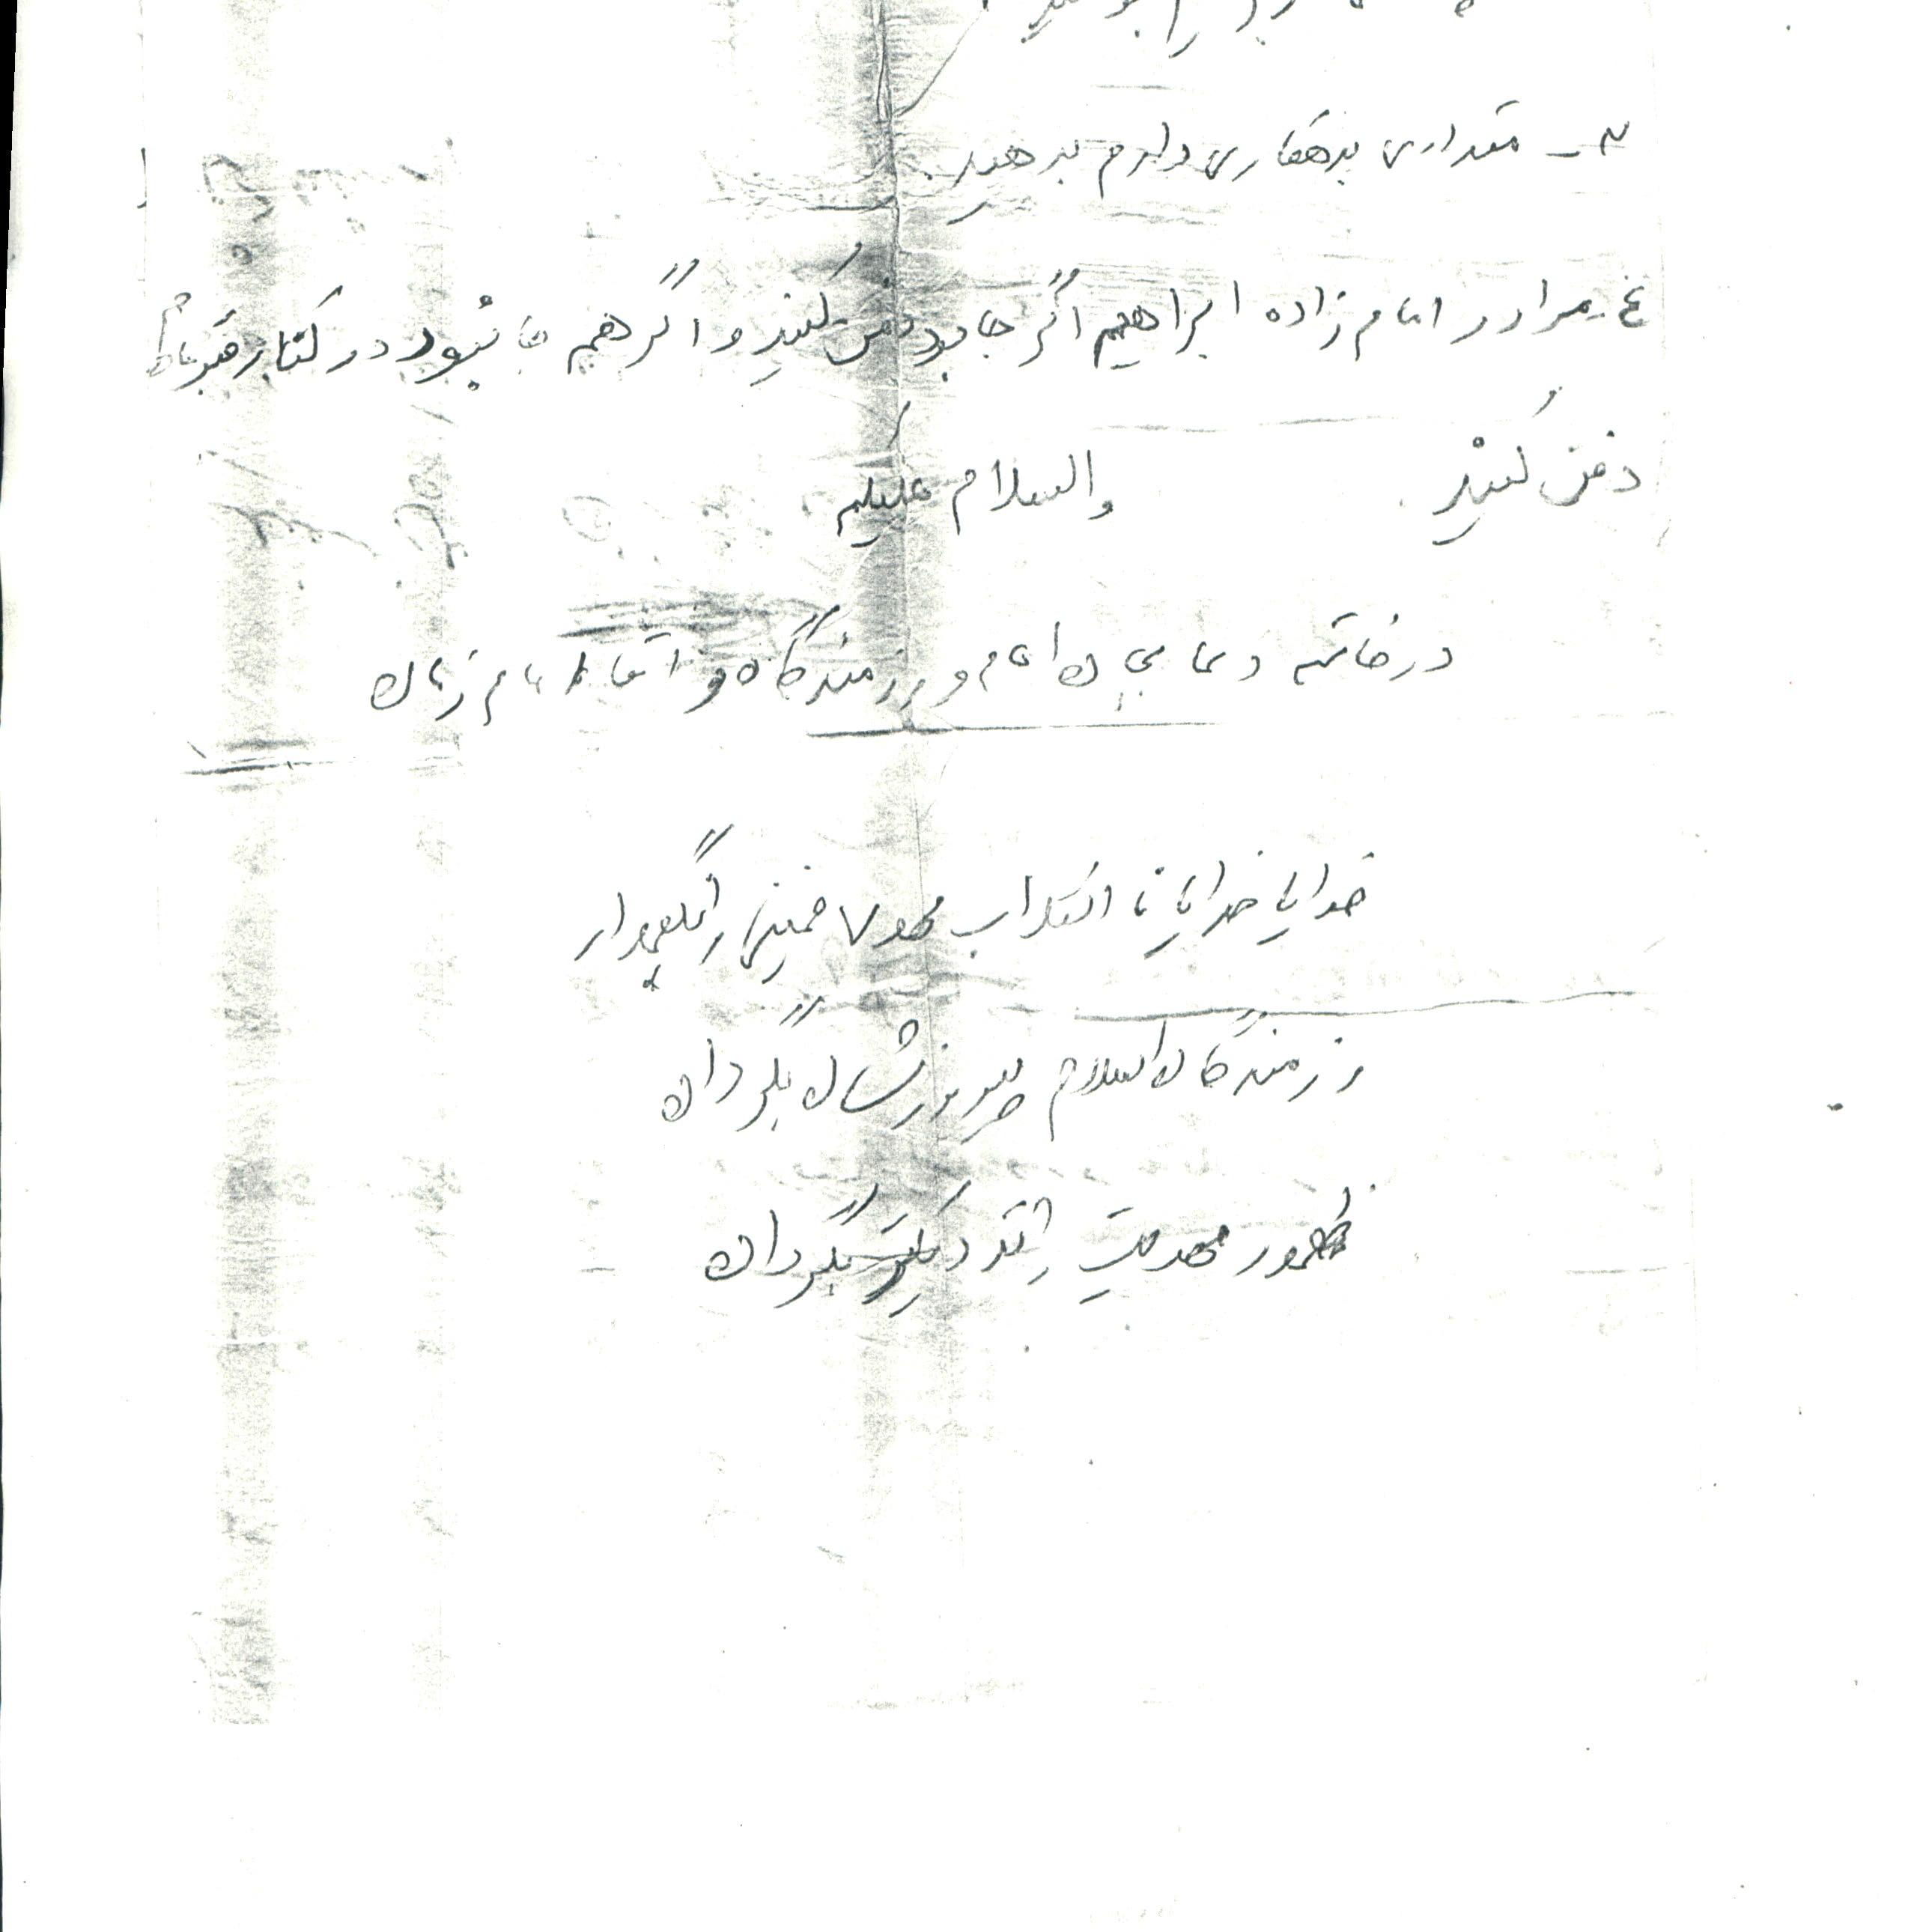 ۳ - مقداری بدهکاری دارم بدهید.
٤ - مرا در امام زاده ابراهیم اگر جا بود دفن کنید و اگر هم جا نبود در کنار قبر
دفن کنید. والسلام علیکم
در خاتمه دعا بجان امام و رزمندگان و آقا امام زمان
خدایا خدایا تا انقلاب مهدی خمینی را نگهدار
رزمندگان اسلام پیروزشان بگردان
ظهور مهدیت را نزدیکتر بگردان